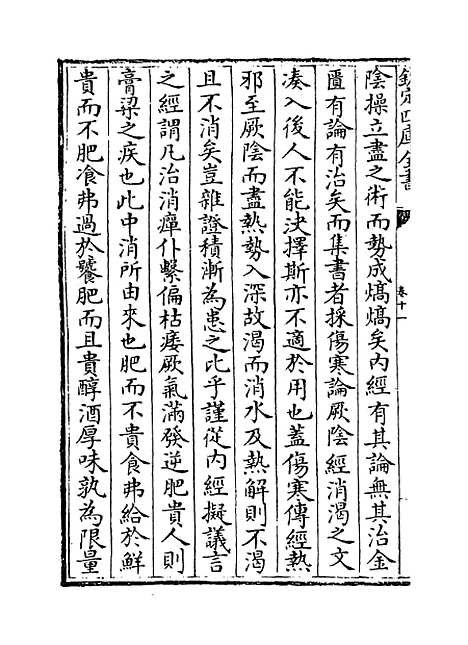 欽定四庫全書
卷十一
陰操立盡之術而勢成熇熇矣内經有其論無其治金
匱有論有治矣而集書者採傷寒論厥陰經消渴之文
湊入後人不能決擇斯亦不適於用也蓋傷寒傳經熱
邪至厥陰而盡熱勢入深故渴而消水及熱解則不渴
且不消矣豈雜證積漸為患之比乎謹從内經擬議言
之經謂凡治消癉仆繫偏枯痿厥氣滿發逆肥貴人則
膏粱之疾也此中消所由來也肥而不貴食弗給於鮮
貴而不肥飡弗過於饕肥而且貴醇酒厚味孰為限量